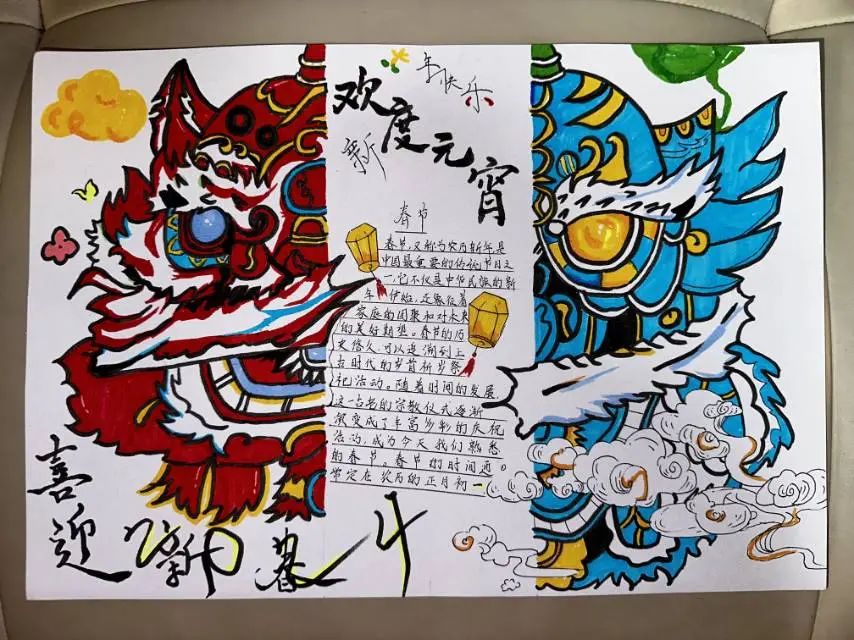 新年快乐
欢度元宵
春节
春节,又称为农历新年是
中国最重要的传统节日之
一,它不仅是中华民族的新
年伊始,还象征着
家庭的团聚和对未来
的美好期望。春节的历
史悠久,可以追溯到上
古时代的岁首祈岁祭
祀活动。随着时间的发展,
这一古老的宗教仪式逐渐
演变成了丰富多彩的庆祝
活动,成为今天我们熟悉
的春节。春节的时间通。
常定在农历的正月初一
喜迎新春